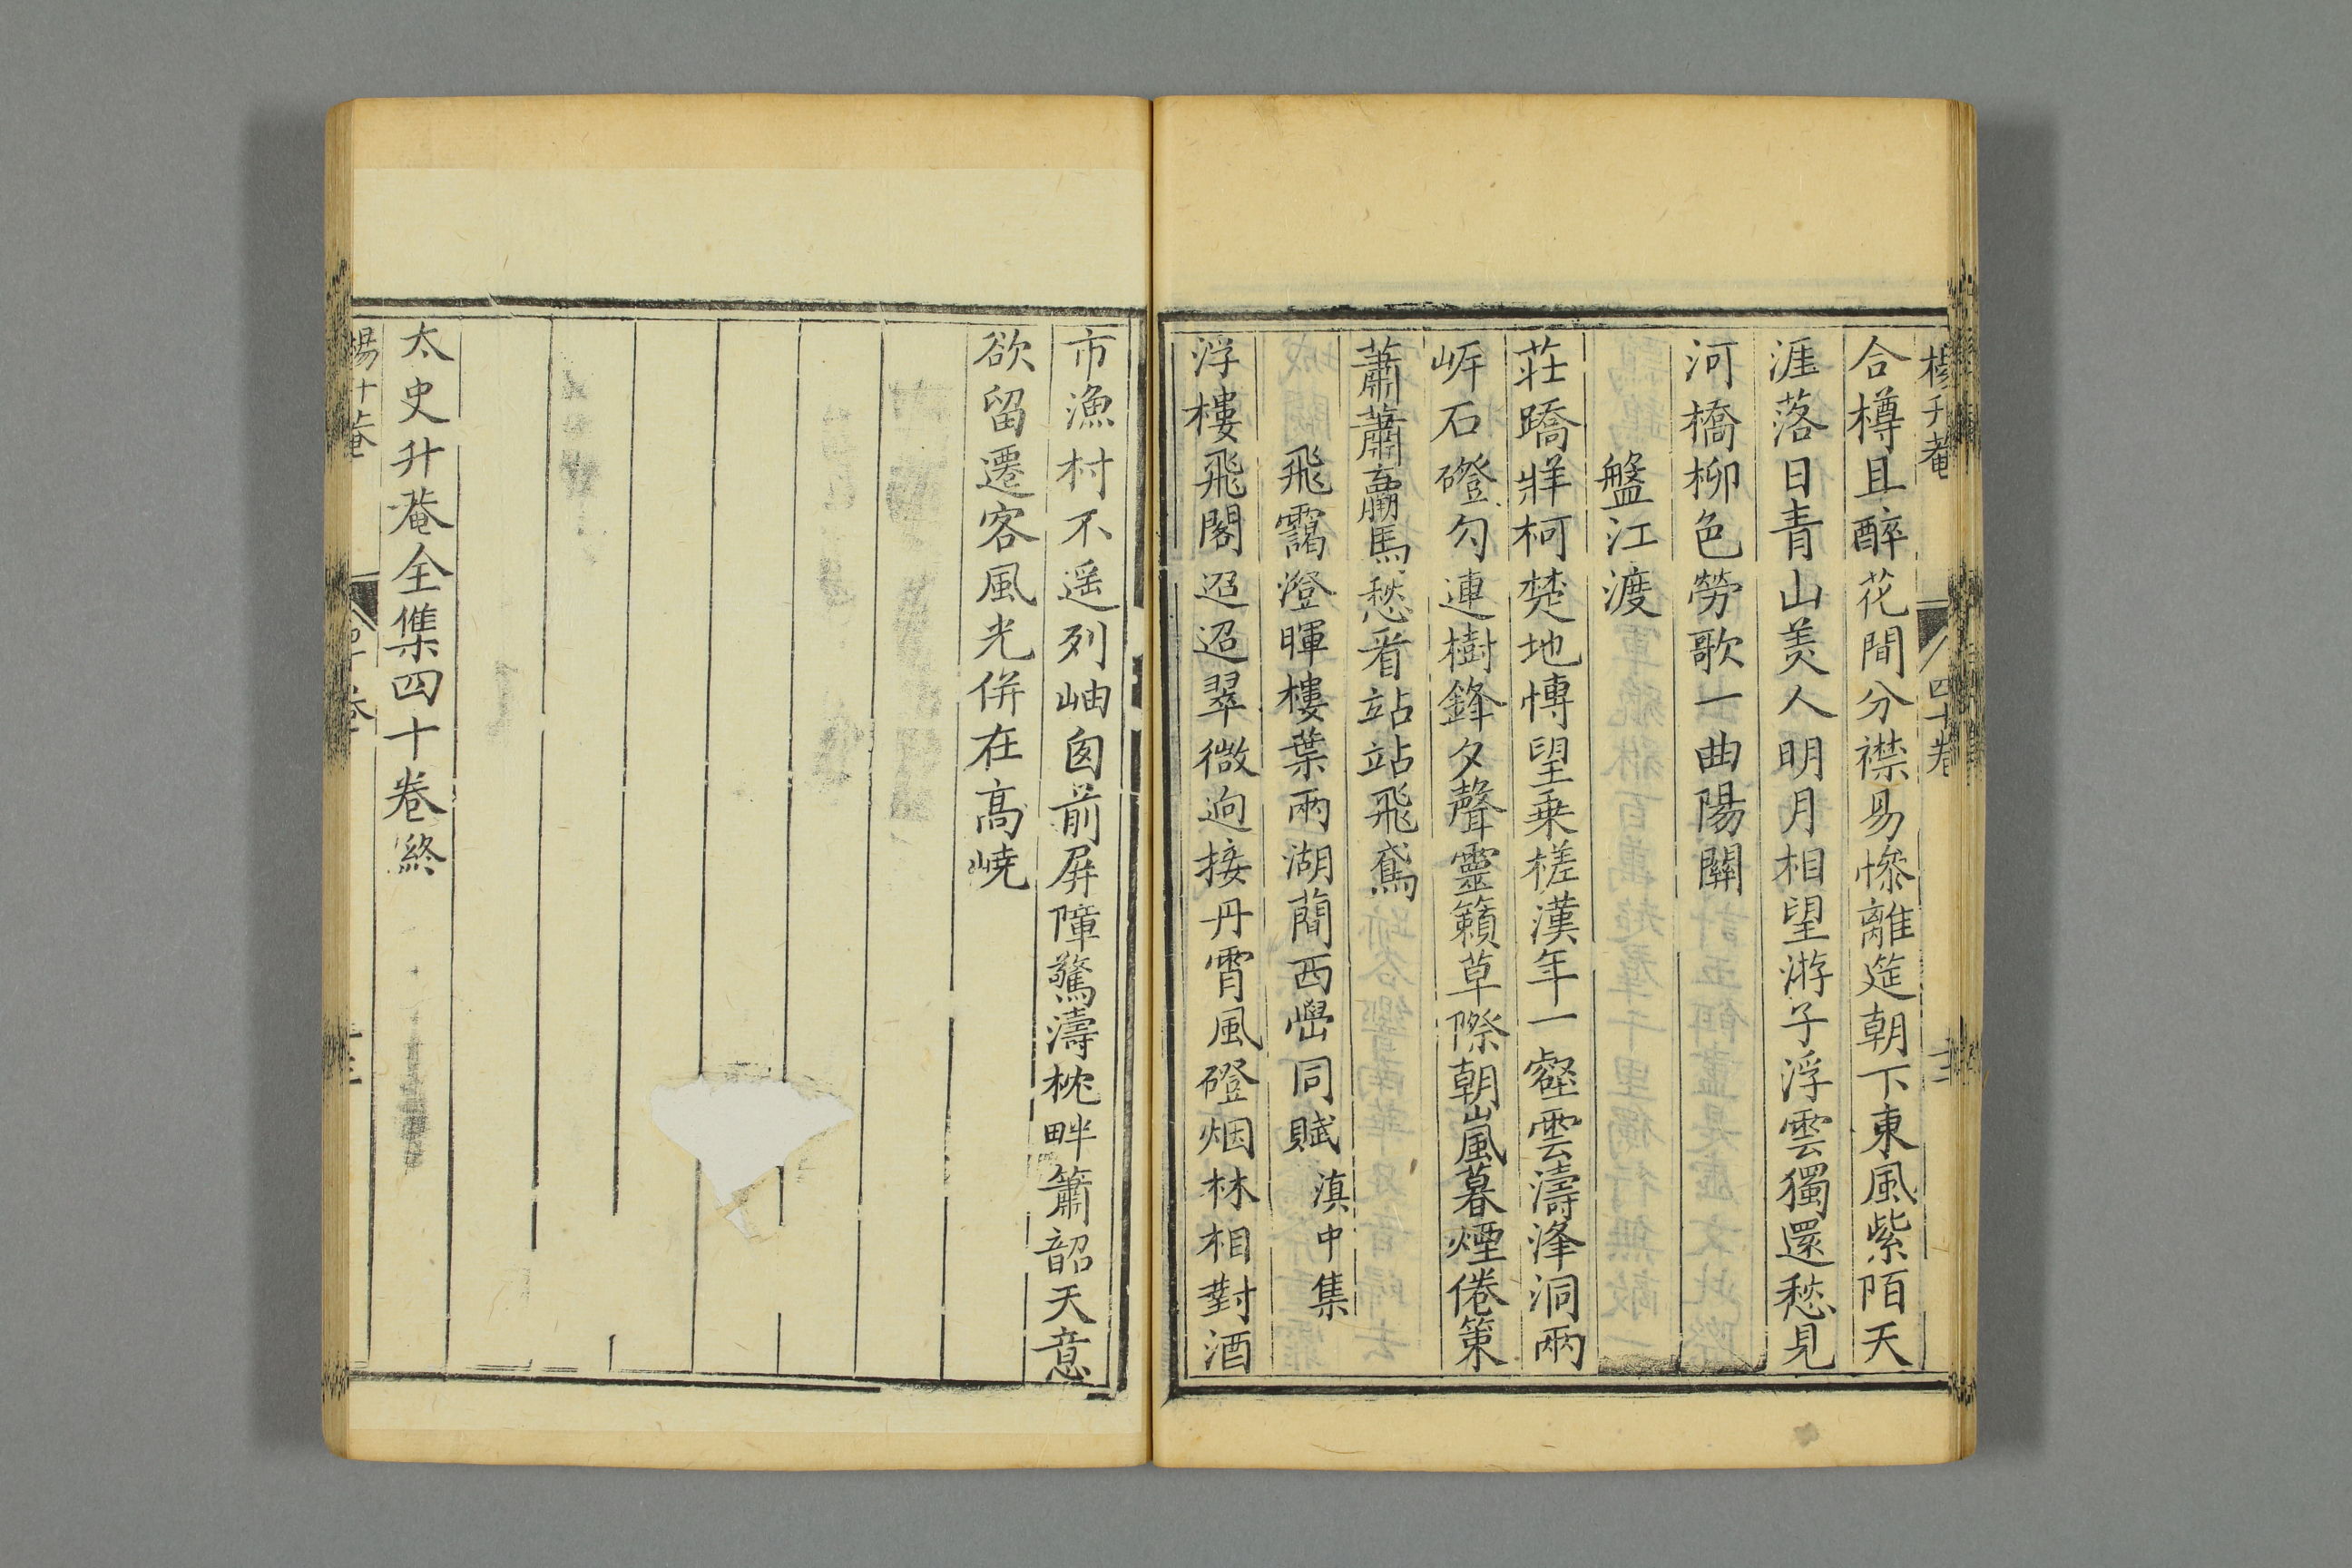 楊升菴
四十卷
合樽且醉花間分襟易慘離筵朝下東風紫陌天
涯落日青山美人明月相望游子浮雲獨還愁見
河橋柳色勞歌一曲陽關
盤江渡
莊蹻牂柯楚地博望乗槎漢年一壑雲濤洚洞兩
岓石磴勻連樹鋒夕聲靈籟草際朝嵐暮煙倦策
蕭蕭羸馬愁看站站飛鳶
飛靄澄暉樓葉兩湖蕳西嶨同賦 滇中集
浮樓飛閣迢迢翠微逈接丹霄風磴烟林相對酒
市漁村不遥列岫囪前屏障驚濤枕畔簫韶天意
欲留遷客風光併在高嶢
太史升菴全集四十卷終
楊升菴